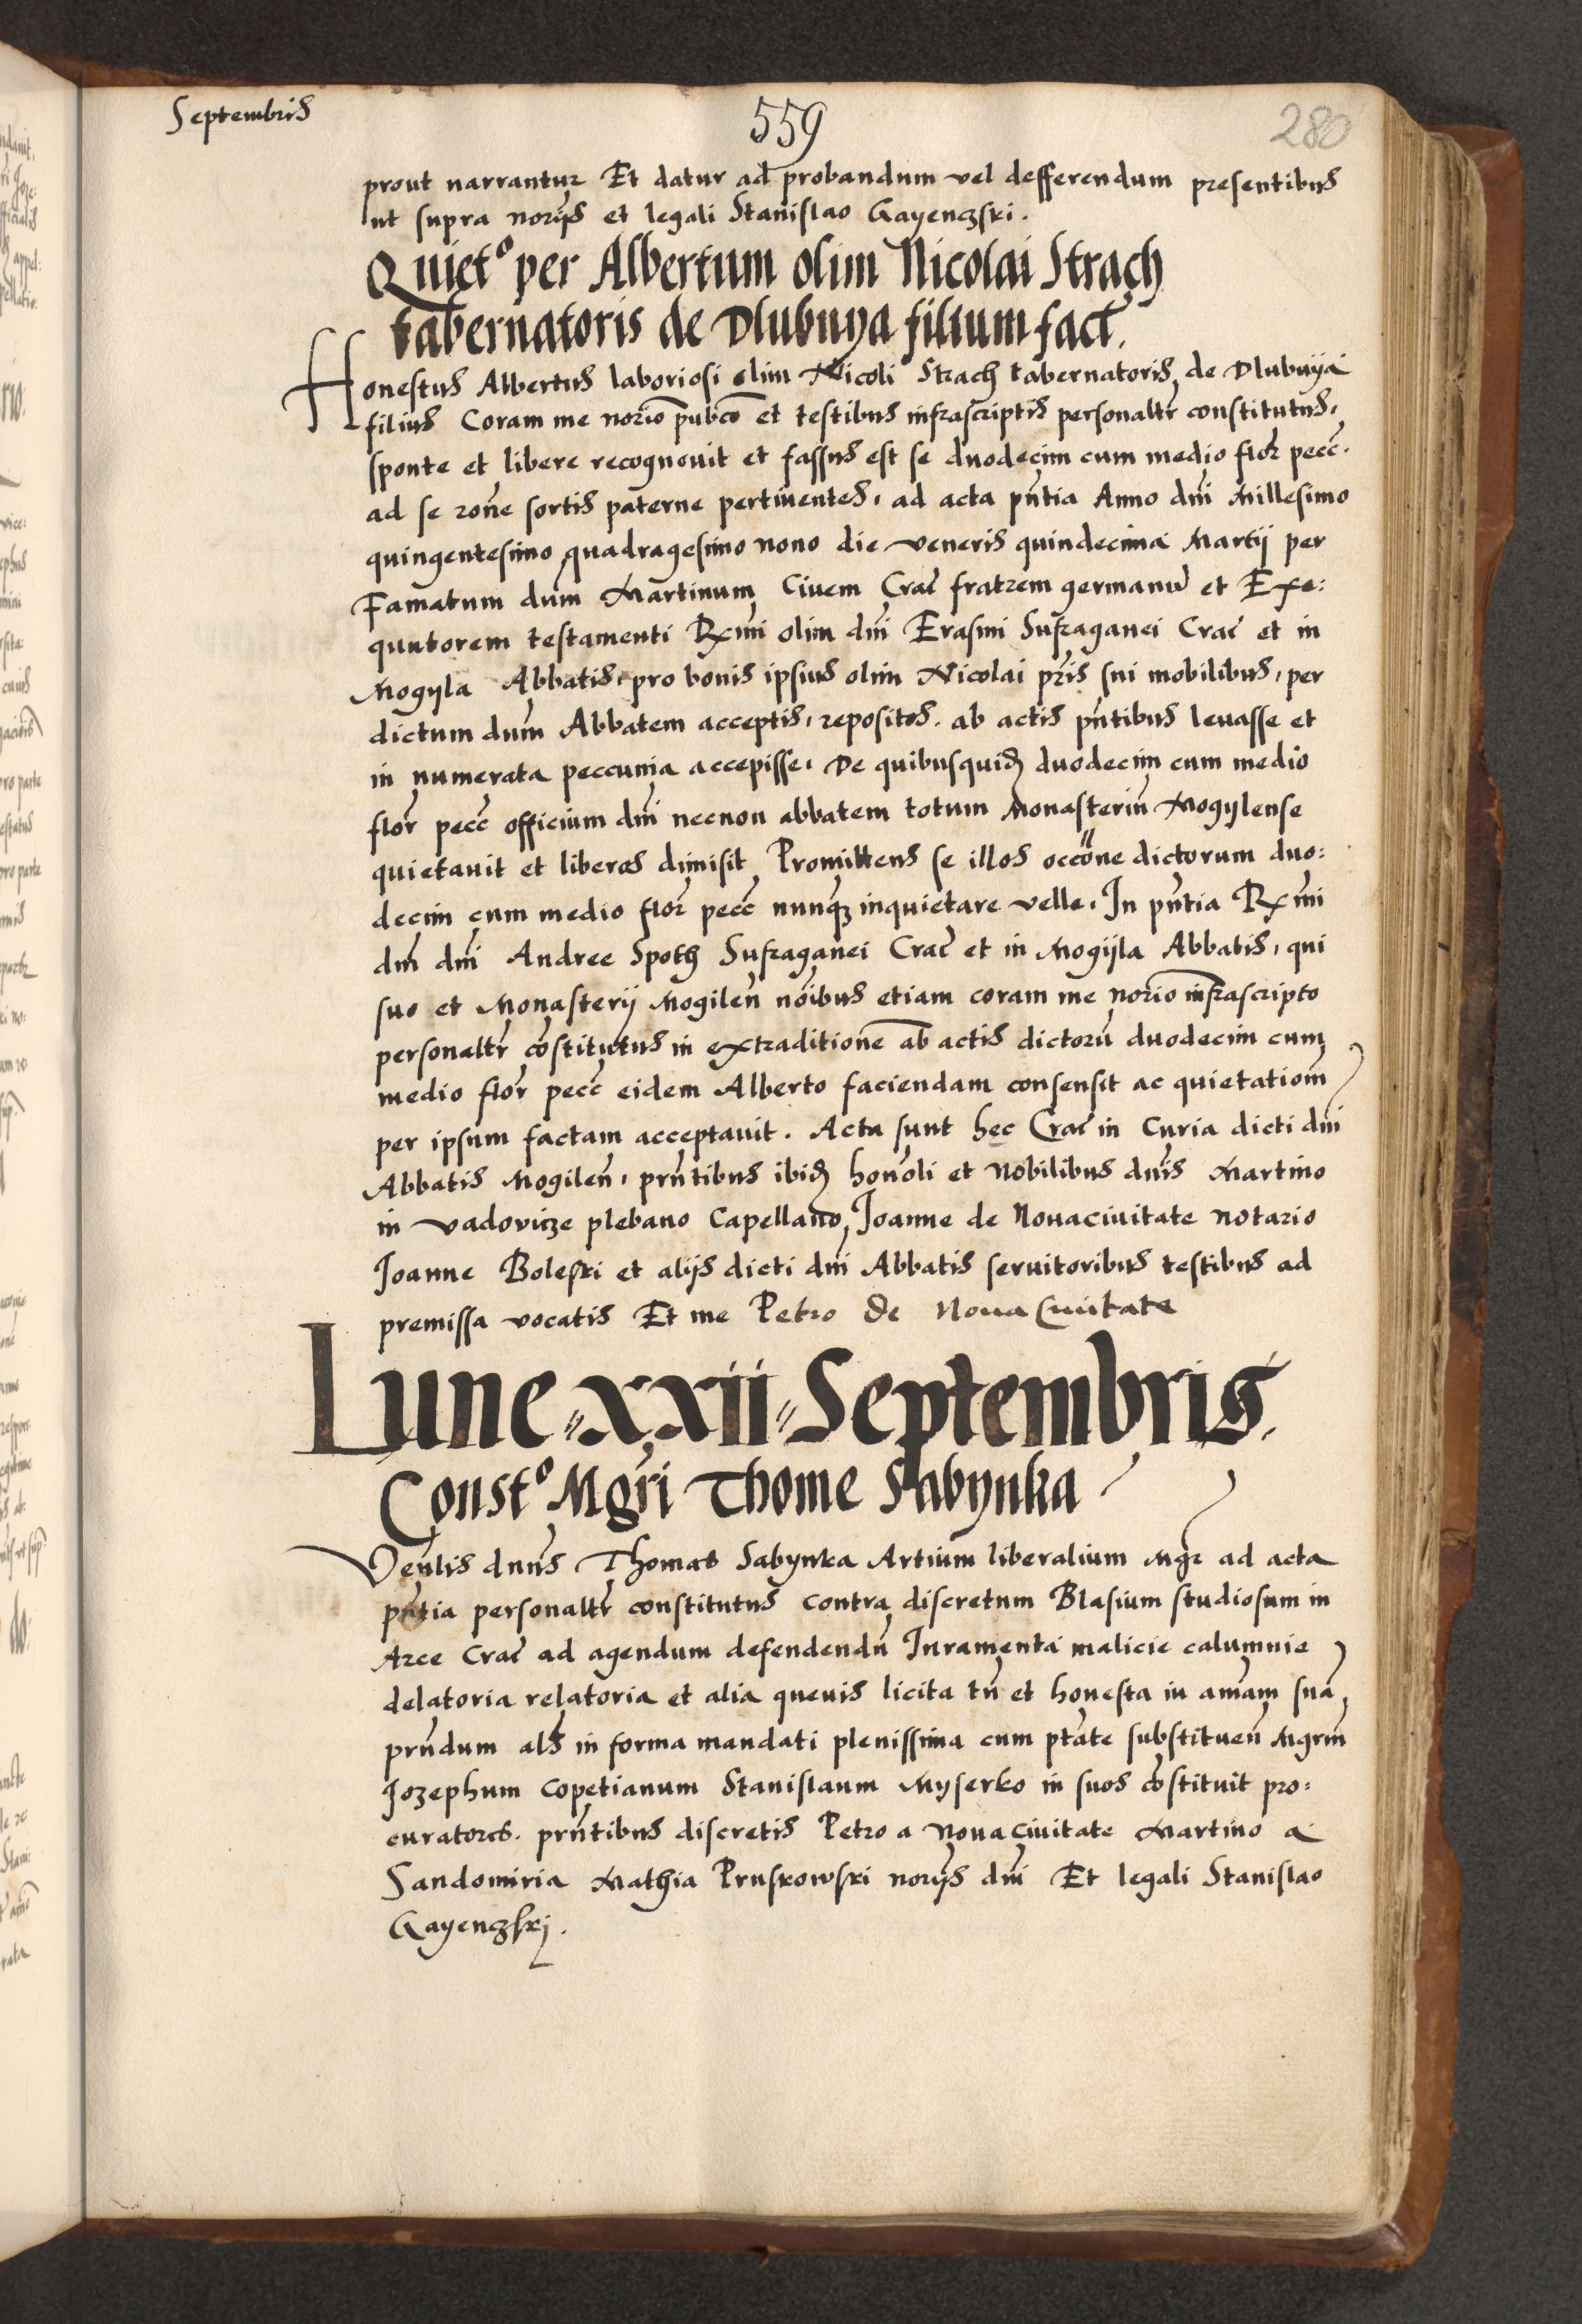 Septembris
559
280
prout narrantur Et datur ad probandum vel defferendum presentibus
ut supra norijs et legali Stanislao Gayenczski.
Quiet° per Albertum olim Nicolai Strach
tabernatoris de Dlubnya filium fact.
Honestus Albertus laboriosi olim Nicoli Strach tabernatoris de Dlubnya
filius Coram me norio pubco et testibus infrascriptis personaltr constitutus,
sponte et libere recognovit et fassus est se duodecim cum medio flor pecc.
ad se rone sortis paterne pertinentes, ad acta pntia Anno dni Millesimo
quingentesimo quadragesimo nono die veneris quindecima Martij per
Famatum dum Martinum Civem Crac fratrem germanu et Exe:
quutorem testamenti Rxmi olim dni Erasmi Sufraganei Crac et in
Mogyla Abbatis, pro bonis ipsius olim Nicolai pris sui mobilibus, per
dictum dum Abbatem acceptis, repositos. ab actis pntibus levasse et
in numerata peccunia accepisse. De quibusquid duodecim cum medio
flor pecc officium dni necnon abbatem totum Monasteriu Mogylense
quietavit et liberos dimisit Promittens se illos occone dictorum duo:
decim cum medio flor pecc nunqz inquietare velle. In pntia Rxmi
dni dni Andree Spoth Sufraganei Crac et in Mogijla Abbatis, qui
suo et Monasterij Mogilen noibus etiam coram me norio infrascripto
personaltr costitutus in extraditione ab actis dictoru duodecim cum
medio flor pecc eidem Alberto faciendam consensit ac quietationm
per ipsum factam acceptavit. Acta sunt hec Crac in Curia dicti dni
Abbatis Mogilen, prntibus ibid honoli et Nobilibus dnis Martino
in vadovicze plebano Capellano, Joanne de Novacivitate notario
Joanne Boleski et alijs dicti dni Abbatis servitoribus testibus ad
premissa vocatis Et me Petro de Nova Civitate
Lune xxii Septembris.
Const° Mgri Thome Sabynka
Venlis dnus Thomas Sabynka Artium liberalium Mgr ad acta
pntia personaltr constitutus contra discretum Blasium studiosum in
Arce Crac ad agendum defendendu Juramenta malicie calumnie
delatoria relatoria et alia quevis licita tn et honesta in amam sua
prndum als in forma mandati plenissima cum ptate substituen Mgrm
Jozephum Copetianum Stanislaum Myserko in suos costituit pro:
curatores. prntibus discretis Petro a Nova civitate Martino a
Sandomiria Mathia Pruskowski norijs dni Et legali Stanislao
Gayenczski.